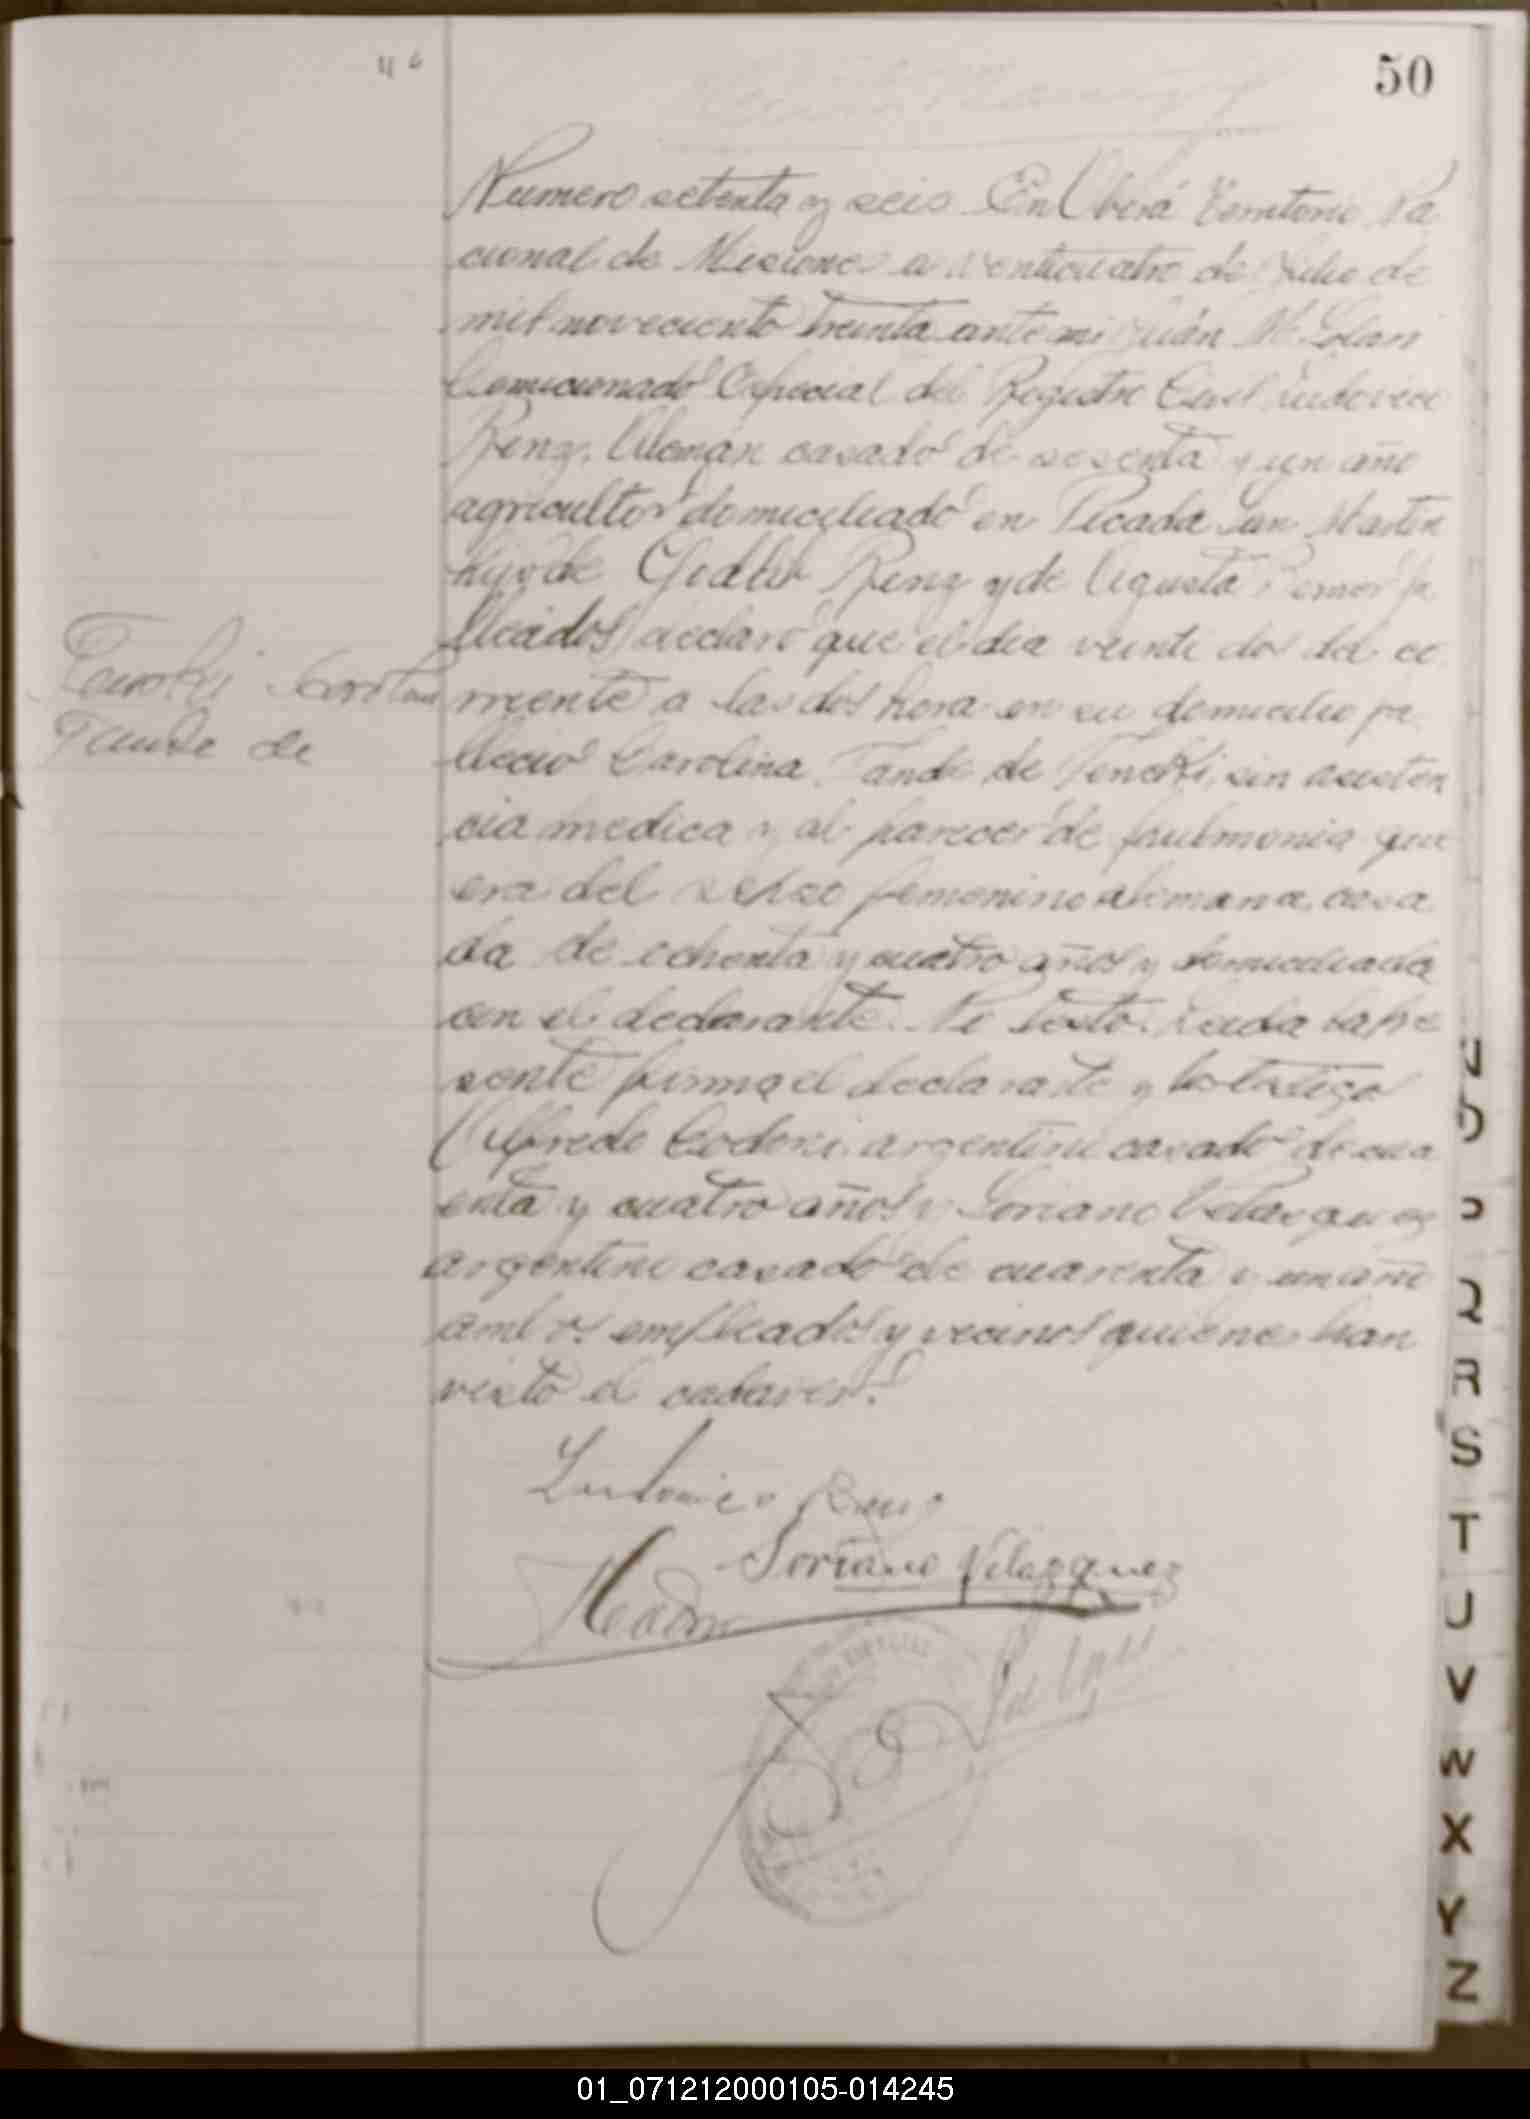 50
Numero setenta y seis En Oberá Territorio Na
cional de Misiones a venticuatro de Julio de
mil noveciento treinta ante mi Juán M. Solari
Comicionado Especial del Registro Civil Ludovico
Renz, Alemán casado de sesenta y un año
agricultor domiciliado en Picada San Martin
hijo de Renz y de Agusta fa
llecidos declaró que el dia veinte dos del co
rriente a las dos hora en su domicilio fa
Tande de
llecio Carolina Tande de sin asisten
cia medica y al parecer de pulmonia que
era del sexso femenino alemana casa
da de ochenta y cuatro años y domiciliada
con el declarante. No testo. Leida la pre
sente firma el declarante y los testigos
Alfredo argentino casado de cua
enta y cuatro años y Soriano Velasquez
argentino casado de cuarenta y un año
ambos empleados y vecinos quienes han
visto el cadaver.
Ludovico Renz
Soriano Velazquez
N
O
P
Q
R
S
T
U
V
W
X
Y
Z
01_071212000105-014245